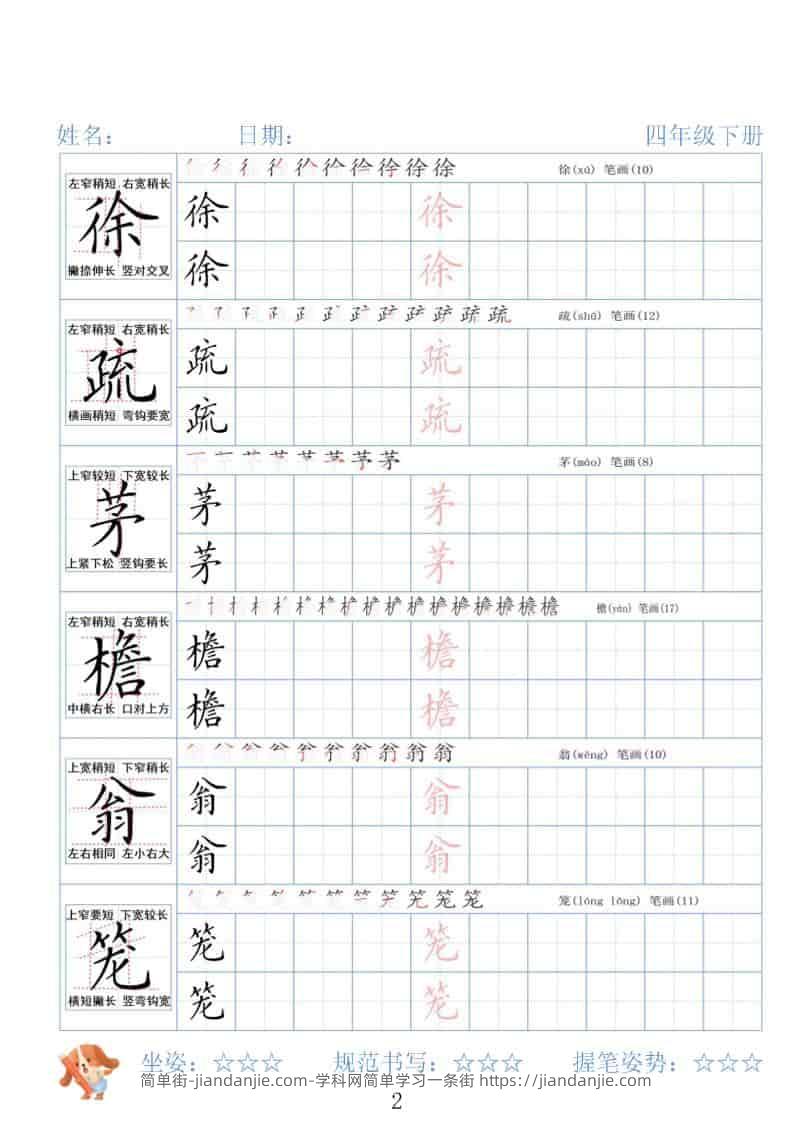 姓名： 日期： 四年级下册
徐(xú) 笔画(10)
左窄稍短 右宽稍长
徐
撇捺伸长 竖对交叉
徐 徐
徐 徐
疏(shū) 笔画(12)
左窄稍短 右宽稍长
疏
横画稍短 弯钩要宽
疏 疏
疏 疏
茅(máo) 笔画(8)
上窄较短 下宽较长
茅
上紧下松 竖钩要长
茅 茅
茅 茅
檐(yán) 笔画(17)
左窄稍短 右宽稍长
檐
中横右长 口对上方
檐 檐
檐 檐
翁(wēng) 笔画(10)
上宽稍短 下窄稍长
翁
左右相同 左小右大
翁 翁
翁 翁
笼(lóng lǒng) 笔画(11)
上窄要短 下宽较长
笼
横短撇长 竖弯钩宽
笼 笼
笼 笼
坐姿：☆☆☆ 规范书写：☆☆☆ 握笔姿势：☆☆☆
简单街-jiandanjie.com-学科网简单学习一条街 https://jiandanjie.com
2